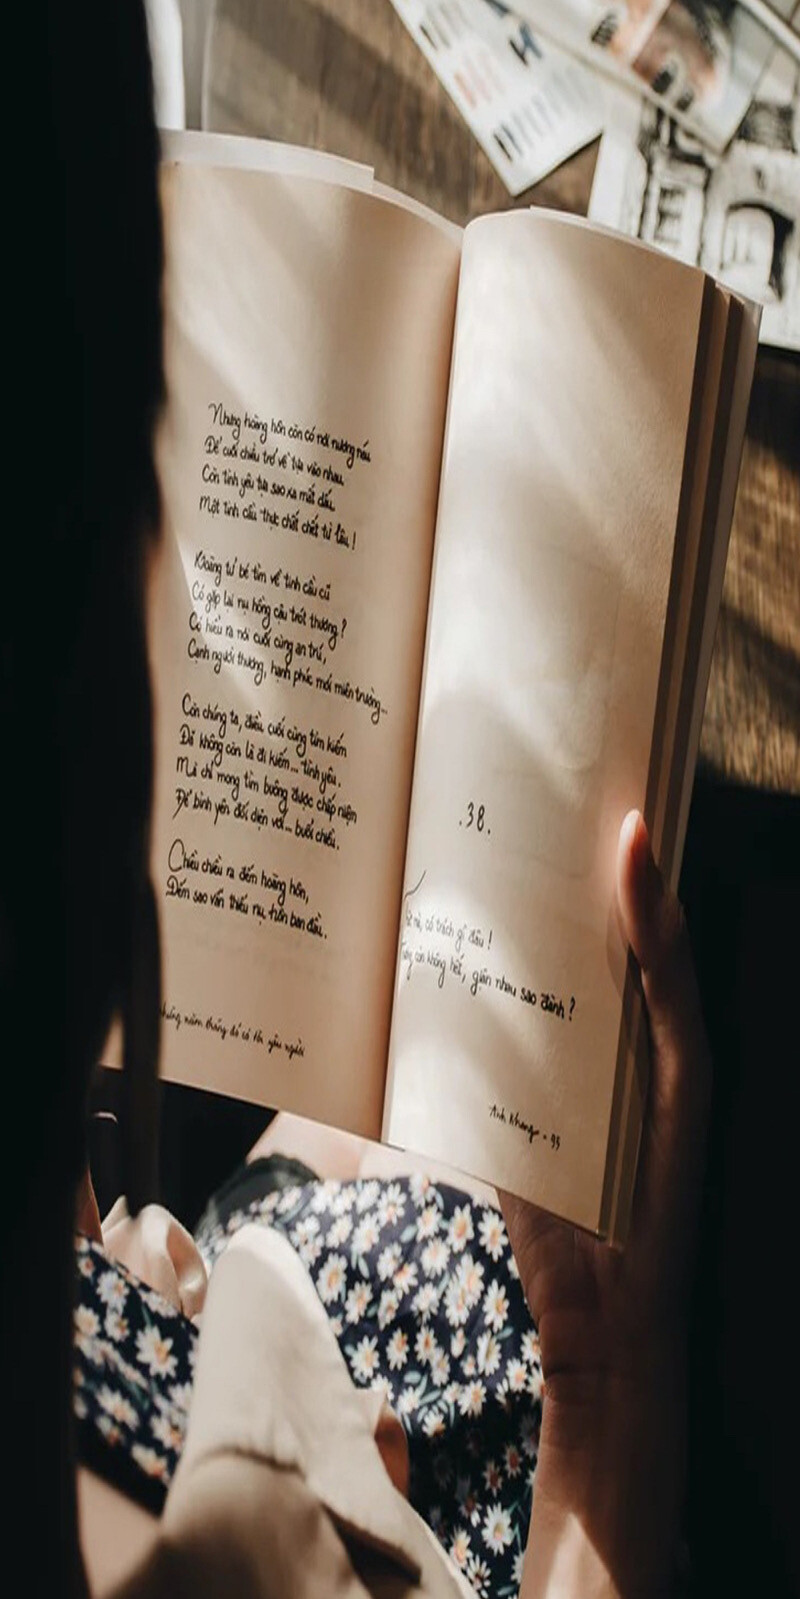 Nhưng hoàng hôn còn có nơi nương náu
Để cuối chiều trở về tựa vào nhau.
Còn tình yêu tựa sao xa mất dấu,
Một tinh cầu thực chất chết từ lâu!
Hoàng tử bé tìm về tinh cầu cũ
Có gặp lại nụ hồng cậu trót thương?
Có hiểu ra nơi cuối cùng an trú,
Cạnh người thương, hạnh phúc mới miên trường...
Còn chúng ta, điều cuối cùng tìm kiếm
Đã không còn là đi kiếm... tình yêu.
Mà chỉ mong tim buông được chấp niệm
Để bình yên đối diện với... buổi chiều.
Chiều chiều ra đếm hoàng hôn,
Đếm sao vẫn thiếu nụ hôn ban đầu.
những năm tháng đó có tôi yêu người
.38.
mà, có trách gì đâu!
còn không hết, giận nhau sao đành?
Anh Khang - 95